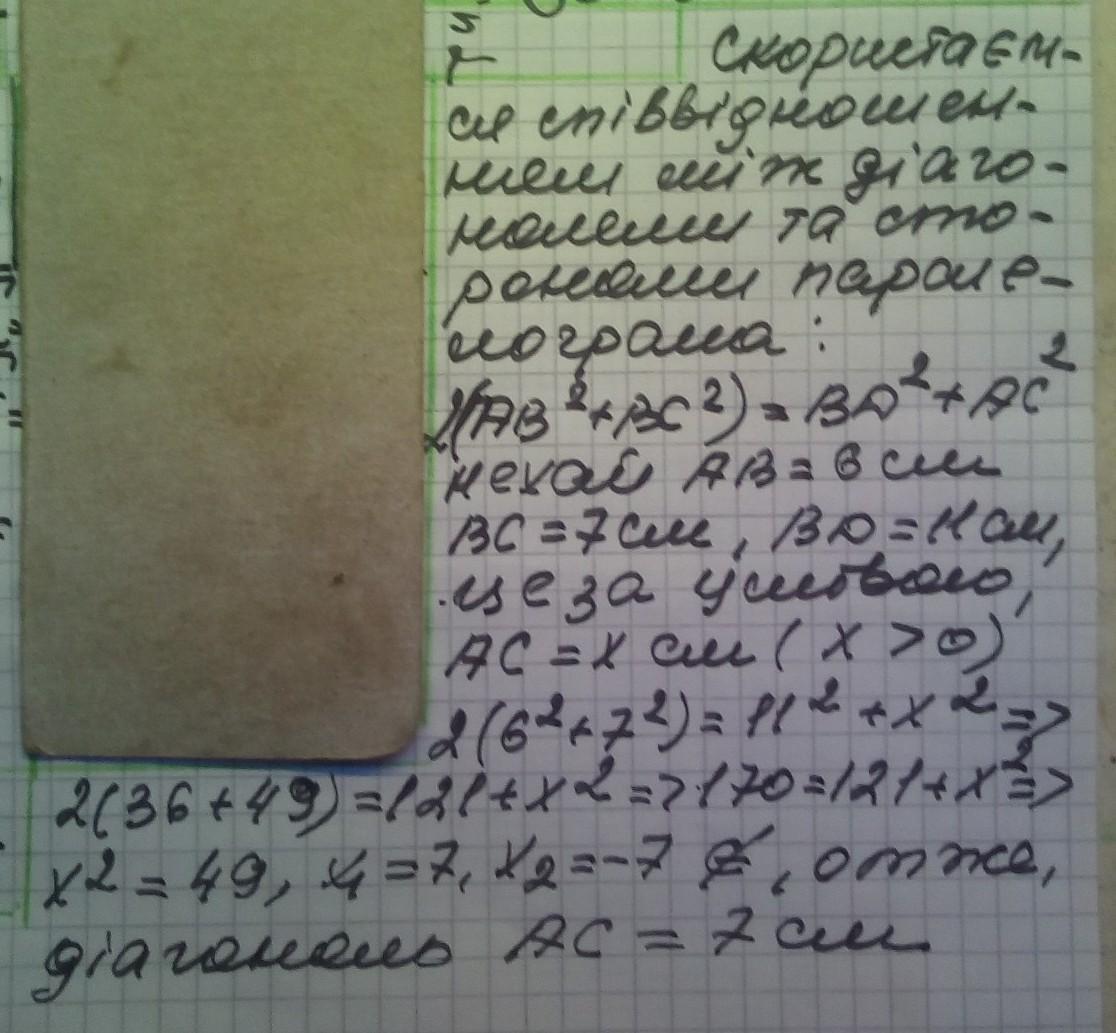 Скористаєм-
ся співвідношен-
ням між діаго-
налями та сто-
ронами парале-
лограма:
2(AB²+BC²)=BD²+AC²
нехай AB=6 см
BC=7см, BD=11см,
це за умовою,
AC=x см (x>0)
2(6²+7²)=11²+x²=>
2(36+49)=121+x²=>170=121+x²=>
x²=49, x₁=7, x₂=-7 ∉, отже,
діагональ AC = 7 см